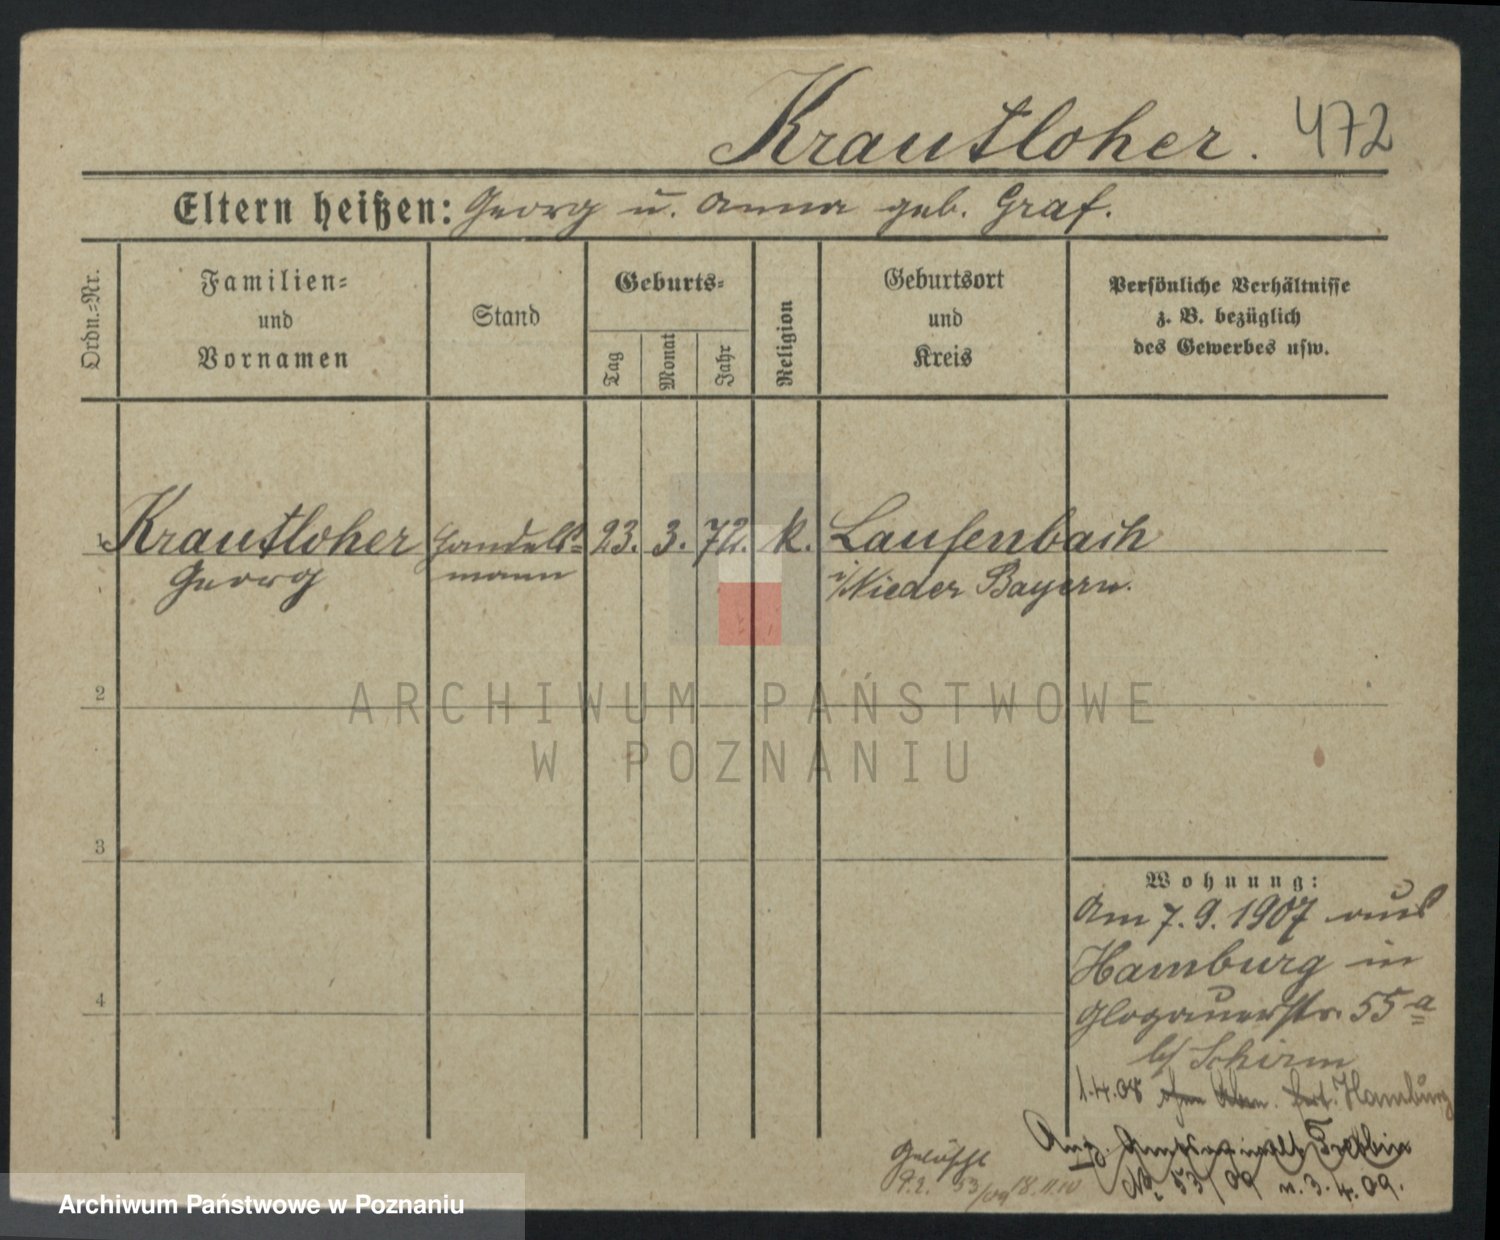 Krautloher. 472
Eltern heißen: Georg u. Anna geb. Graf.
Ordn.=Nr.
Familien=
und
Vornamen
Stand
Geburts=
Tag
Monat
Jahr
Religion
Geburtsort
und
Kreis
Persönliche Verhältnisse
z. B. bezüglich
des Gewerbes usw.
1 Krautloher Handels= 23. 3. 72. k. Laufenbach
Georg mann i/Nieder Bayern.
2
ARCHIWUM PAŃSTWOWE
W POZNANIU
3
Wohnung:
Am 7. 9. 1907 aus
Hamburg in
Glogauerstr. 55a
b/ Schirm
4
1.4.08 ohne Abm. fort. Hamburg
Gelöscht
53/09 18.11.10
No 53/09 v. 3.4.09.
Archiwum Państwowe w Poznaniu